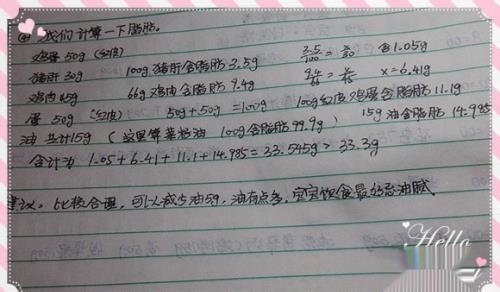 ④ 我们计算一下脂肪。
鸡蛋 50g (红皮)
猪肝 30g 100g 猪肝含脂肪 3.5g 3.5/100 = x/30 含1.05g
鸡肉 45g 66g 鸡肉含脂肪 9.4g 9.4/66 = x/45 x=6.41g
蛋 50g (红皮) 50g+50g=100g 100g红皮鸡蛋含脂肪 11.1g
油 共计15g (这里算菜籽油 100g含脂肪 99.9g) 15g 油含脂肪 14.985
合计为 1.05+6.41+11.1+14.985=33.545g > 33.3g
建议。比较合理,可以减少油5g,油有点多,宝宝饮食最好忌油腻
Hello